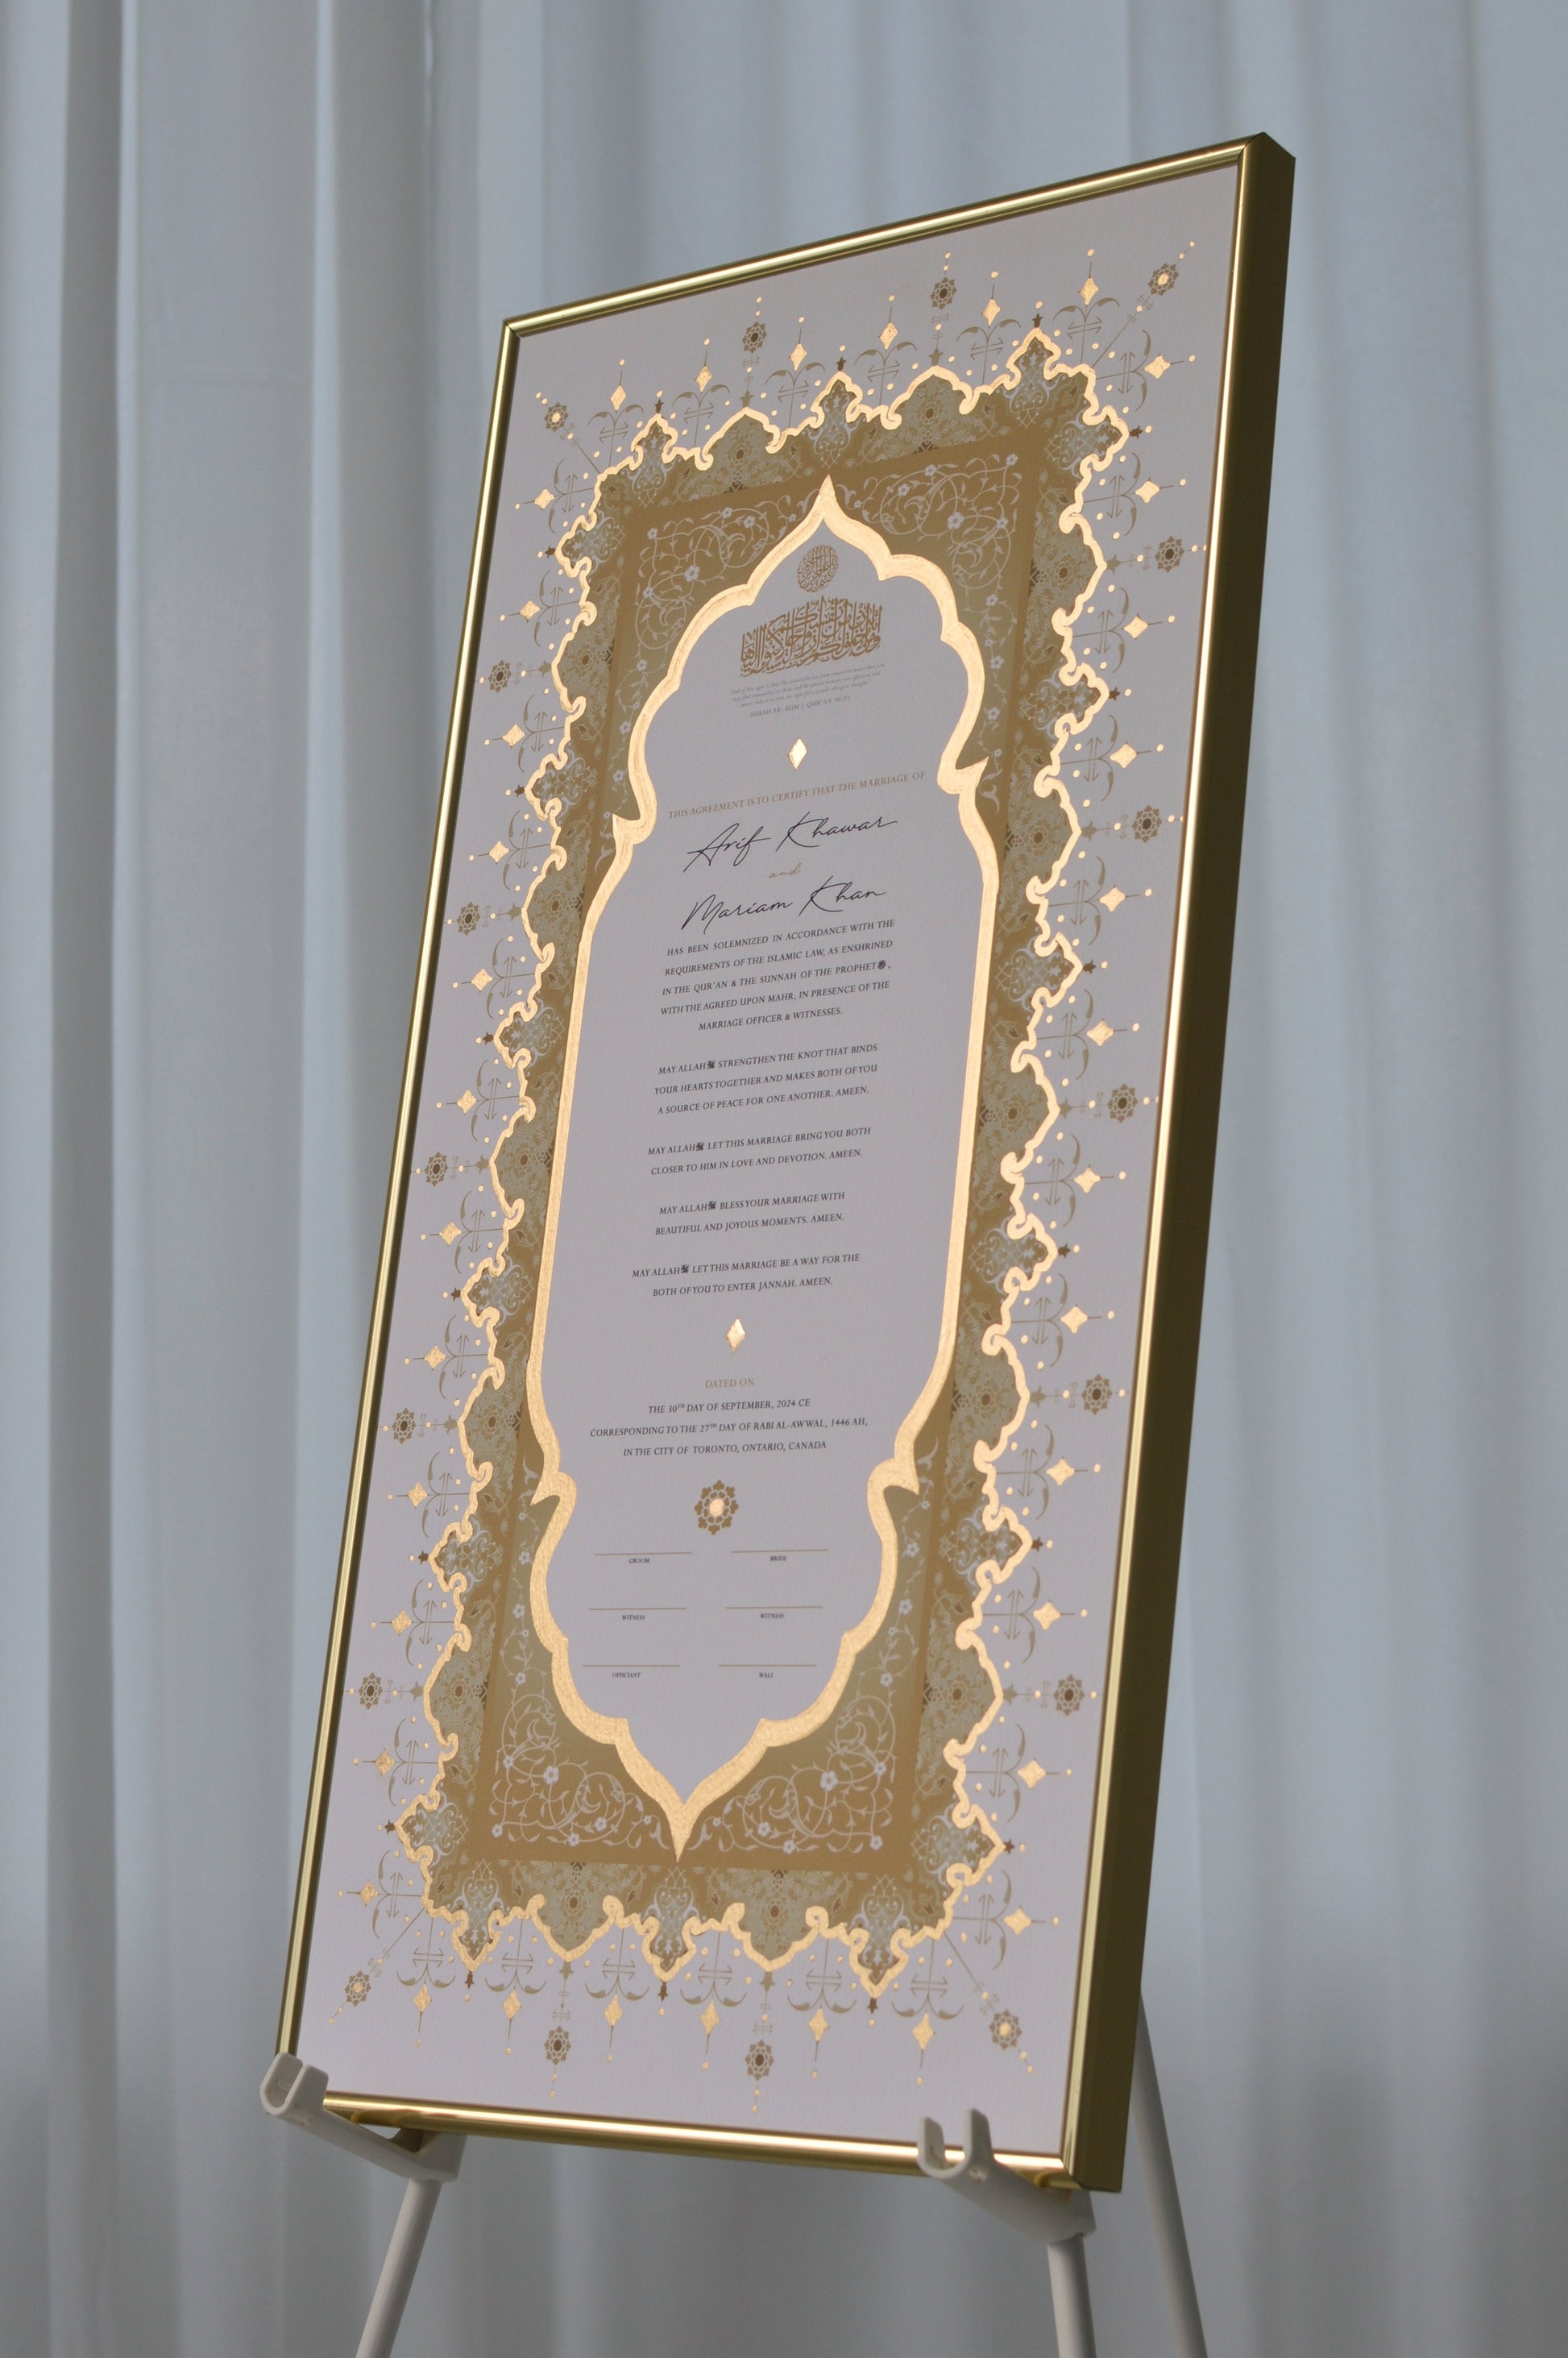 THIS AGREEMENT IS TO CERTIFY THAT THE MARRIAGE OF
Arif Khawar
and
Mariam Khan
HAS BEEN SOLEMNIZED IN ACCORDANCE WITH THE
REQUIREMENTS OF THE ISLAMIC LAW, AS ENSHRINED
IN THE QUR'AN & THE SUNNAH OF THE PROPHET ﷺ,
WITH THE AGREED UPON MAHR, IN PRESENCE OF THE
MARRIAGE OFFICER & WITNESSES.
MAY ALLAH STRENGTHEN THE KNOT THAT BINDS
YOUR HEARTS TOGETHER AND MAKES BOTH OF YOU
A SOURCE OF PEACE FOR ONE ANOTHER. AMEEN.
MAY ALLAH LET THIS MARRIAGE BRING YOU BOTH
CLOSER TO HIM IN LOVE AND DEVOTION. AMEEN.
MAY ALLAH BLESS YOUR MARRIAGE WITH
BEAUTIFUL AND JOYOUS MOMENTS. AMEEN.
MAY ALLAH LET THIS MARRIAGE BE A WAY FOR THE
BOTH OF YOU TO ENTER JANNAH. AMEEN.
DATED ON
THE 30TH DAY OF SEPTEMBER, 2024 CE
CORRESPONDING TO THE 27TH DAY OF RABI AL-AWWAL, 1446 AH,
IN THE CITY OF TORONTO, ONTARIO, CANADA
GROOM BRIDE
WITNESS WITNESS
OFFICIANT WALI